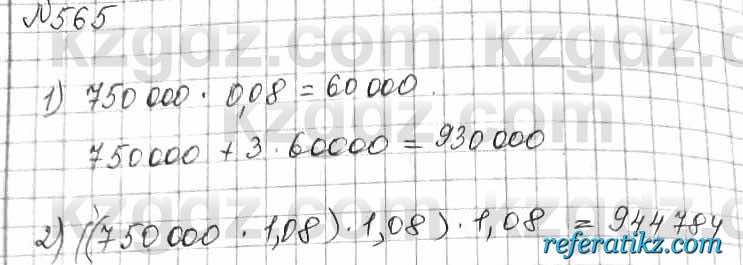 №565
1) 750 000 · 0,08 = 60 000.
750000 + 3 · 60000 = 930 000
2) ((750 000 · 1,08) · 1,08) · 1,08 = 944784
referatikz.com